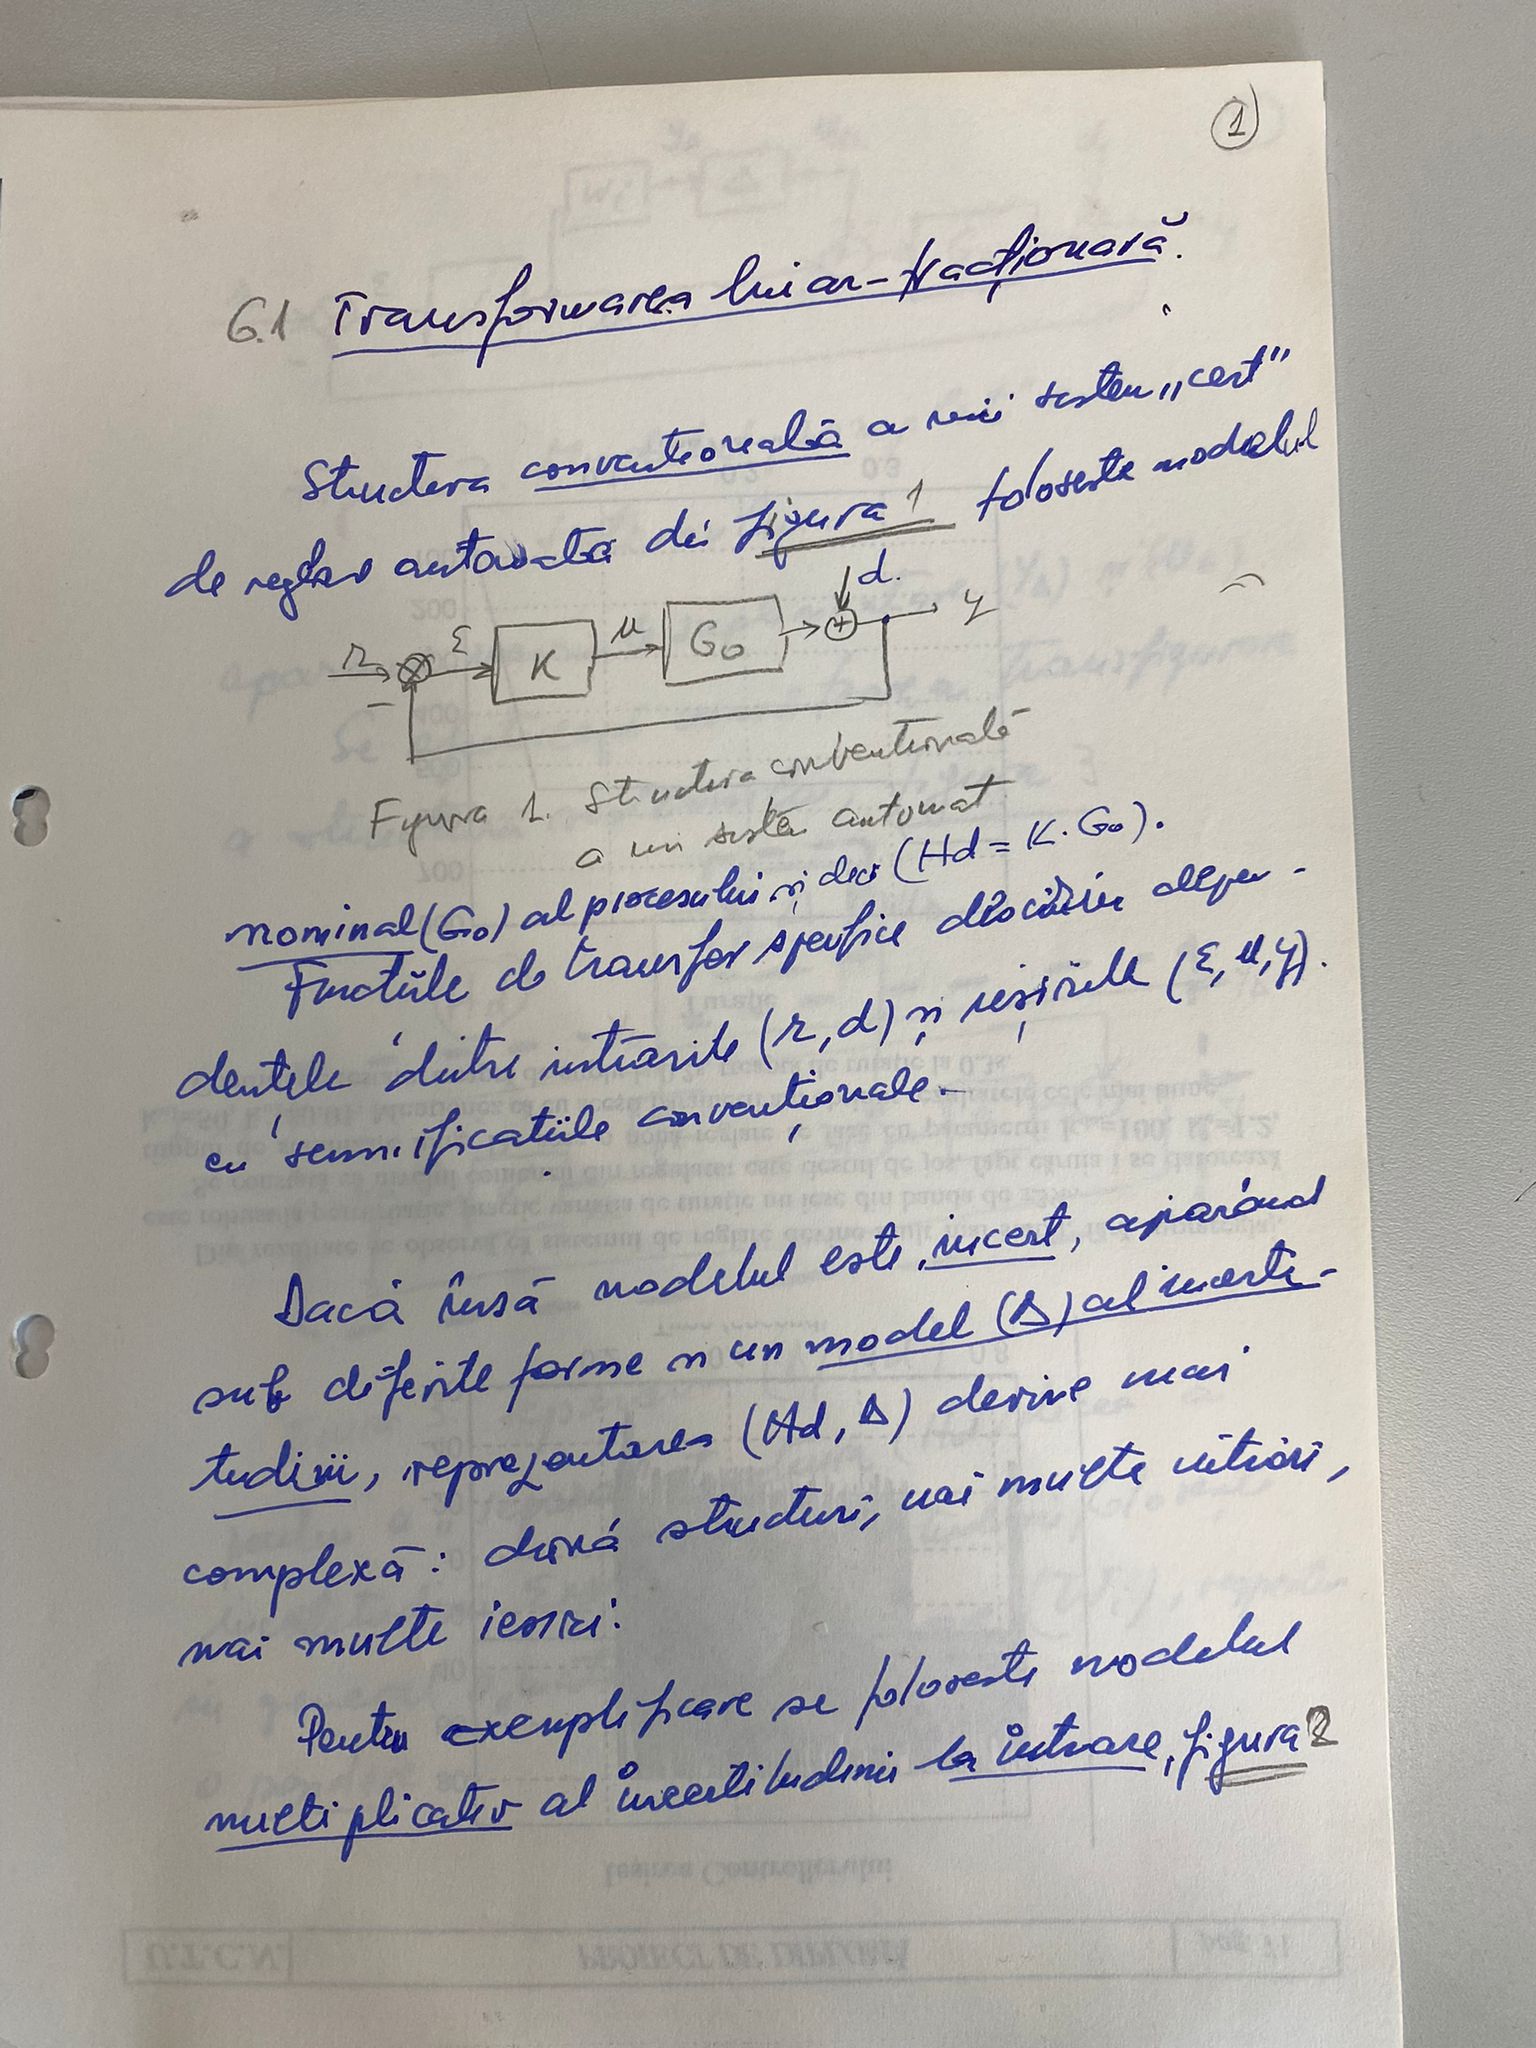 1
6.1 Transformarea liniar-fracționară.
Structura convențională a unui sistem „cert"
de reglare automată din figura 1 folosește modelul
r ε K u G0 + d. y
-
Figura 1. Structura convențională
a un sistem automat
nominal (G0) al procesului și deci (Hd = K·G0).
Funcțiile de transfer specifice descriu depen-
dențele dintre intrările (r, d) și ieșirile (ε, u, y).
cu semnificațiile convenționale.
Dacă însă modelul este incert, apărând
sub diferite forme și un model (Δ) al incerti-
tudinii, reprezentarea (Hd, Δ) devine mai
complexă: două structuri, mai multe intrări,
mai multe ieșiri.
Pentru exemplificare se folosește modelul
multiplicativ al incertitudinii la intrare, figura 2